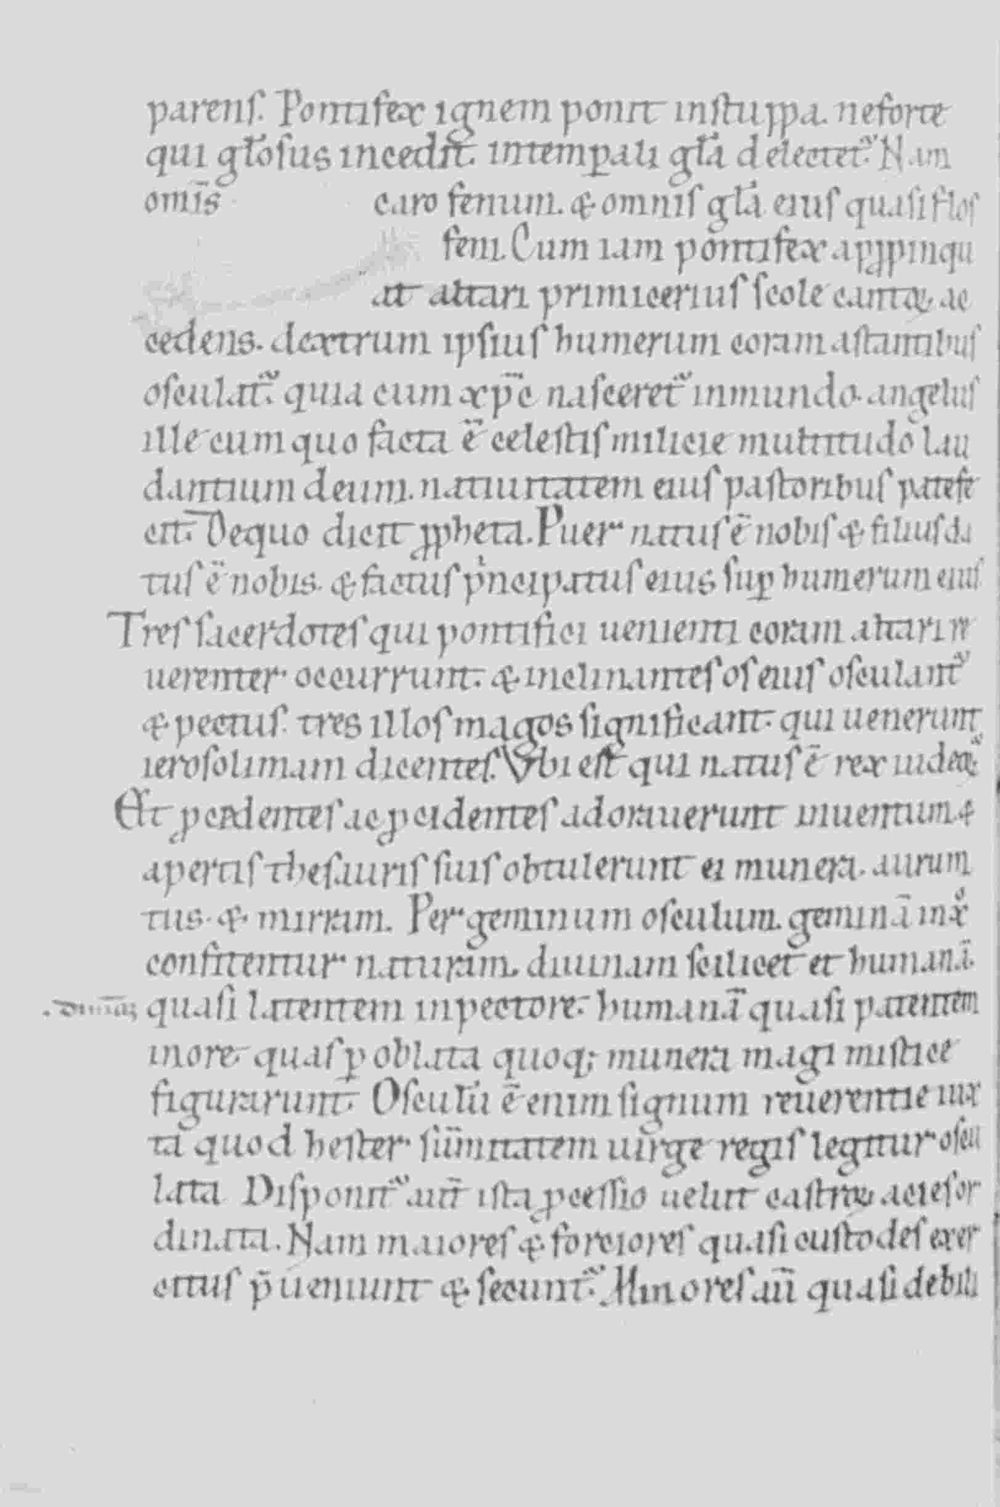 parenſ. Pontifex ignem ponit inſtuppa. neforte
qui gl̄oſus incedit. intemꝑali gl̄a delectet᷑. Nam
omīs caro fenum. & omniſ gl̄a eiuſ quaſi floſ
feni. Cum iam pōntifex apꝓpinqu
at altari primiceriuſ ſcole cantoꝝ ac
cedens. dextrum ipſiuſ humerum coram aſtantibuſ
oſculat᷑. quia cum xp̄c naſceret᷑ inmundo. angeluſ
ille cum quo facta ē celeſtiſ milicie multitudo lau
dantium deum. natiuitatem eiuſ paſtoribuſ patefe
cit. De quo dicit ꝓpheta. Puer natuſ ē nobiſ & filiuſ da
tuſ ē nobis. & factuſ pͥncipatuſ eius ſuꝑ humerum eiuſ
Treſ ſacerdoteſ qui pontifici uenienti coram altari re
uerenter occurrunt. & inclinanteſ oſ eiuſ oſculant᷑
& pectuſ. tres illoſ magos ſignificant. qui uenerunt
ieroſolimam dicenteſ. Vbi eſt qui natuſ ē rex iudeoꝝ
Et ꝓcedenteſ ac ꝓcidenteſ adorauerunt inuentum &
apertiſ theſauriſ ſuiſ obtulerunt ei munera. aurum
tus. & mirram. Per geminum oſculum. geminā in xͦ
confitentur naturam. diuinam ſcilicet et humanā.
.diuinā. quaſi latentem inpectore. humanā quaſi patentem
inore. quaſ ꝑ oblata quoq; munera magi miſtice
figurarunt. Oſculū ē enim ſignum reuerentie iux
ta quod heſter ſūmitatem uirge regiſ legitur oſcu
lata Diſponit᷑ aūt iſta ꝓceſſio uelut caſtroꝝ acieſ or
dinata. Nam maioreſ & forcioreſ quaſi cuſtodeſ exer
cituſ p̄ueniunt & ſecunt᷑. Minoreſ aū quaſi debili